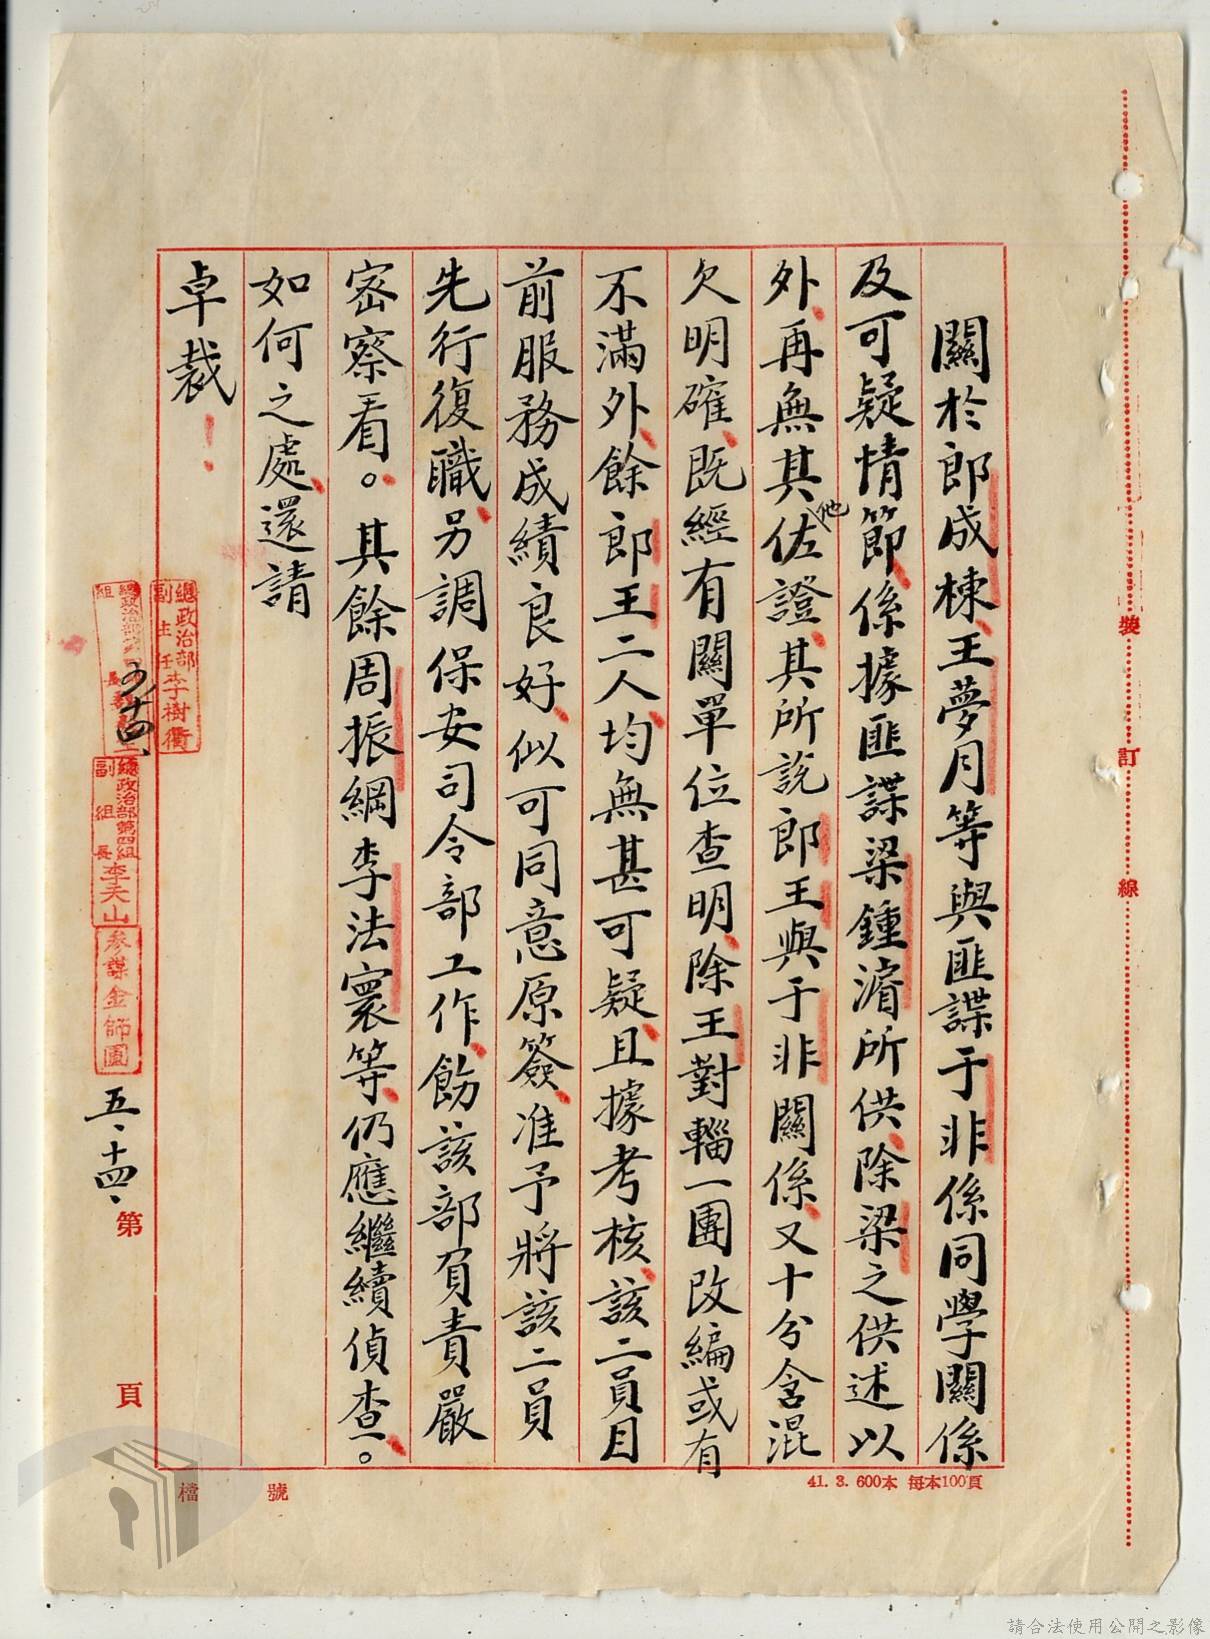 關於郎成棟、王夢月等與匪諜于非係同學關係
及可疑情節、係據匪諜梁鍾濬所供、除梁之供述以
外、再無其他佐證、其所說郎王與于非關係、又十分含混
欠明確、既經有關單位查明、除王對輜一團改編或有
不滿外、餘郎王二人、均無甚可疑、且據考核、該二員目
前服務成績良好、似可同意原簽、准予將該二員
先行復職、另調保安司令部工作、飭該部負責嚴
密察看。其餘周振綱李法寰等、仍應繼續偵查。
如何之處、還請
卓裁！
總政治部
副主任李樹衢
總政治部第四組
副組長李天山
參謀金師圃
五、十四、
第 頁
檔 號
41. 3. 600本 每本100頁
裝 訂 線
請合法使用公開之影像